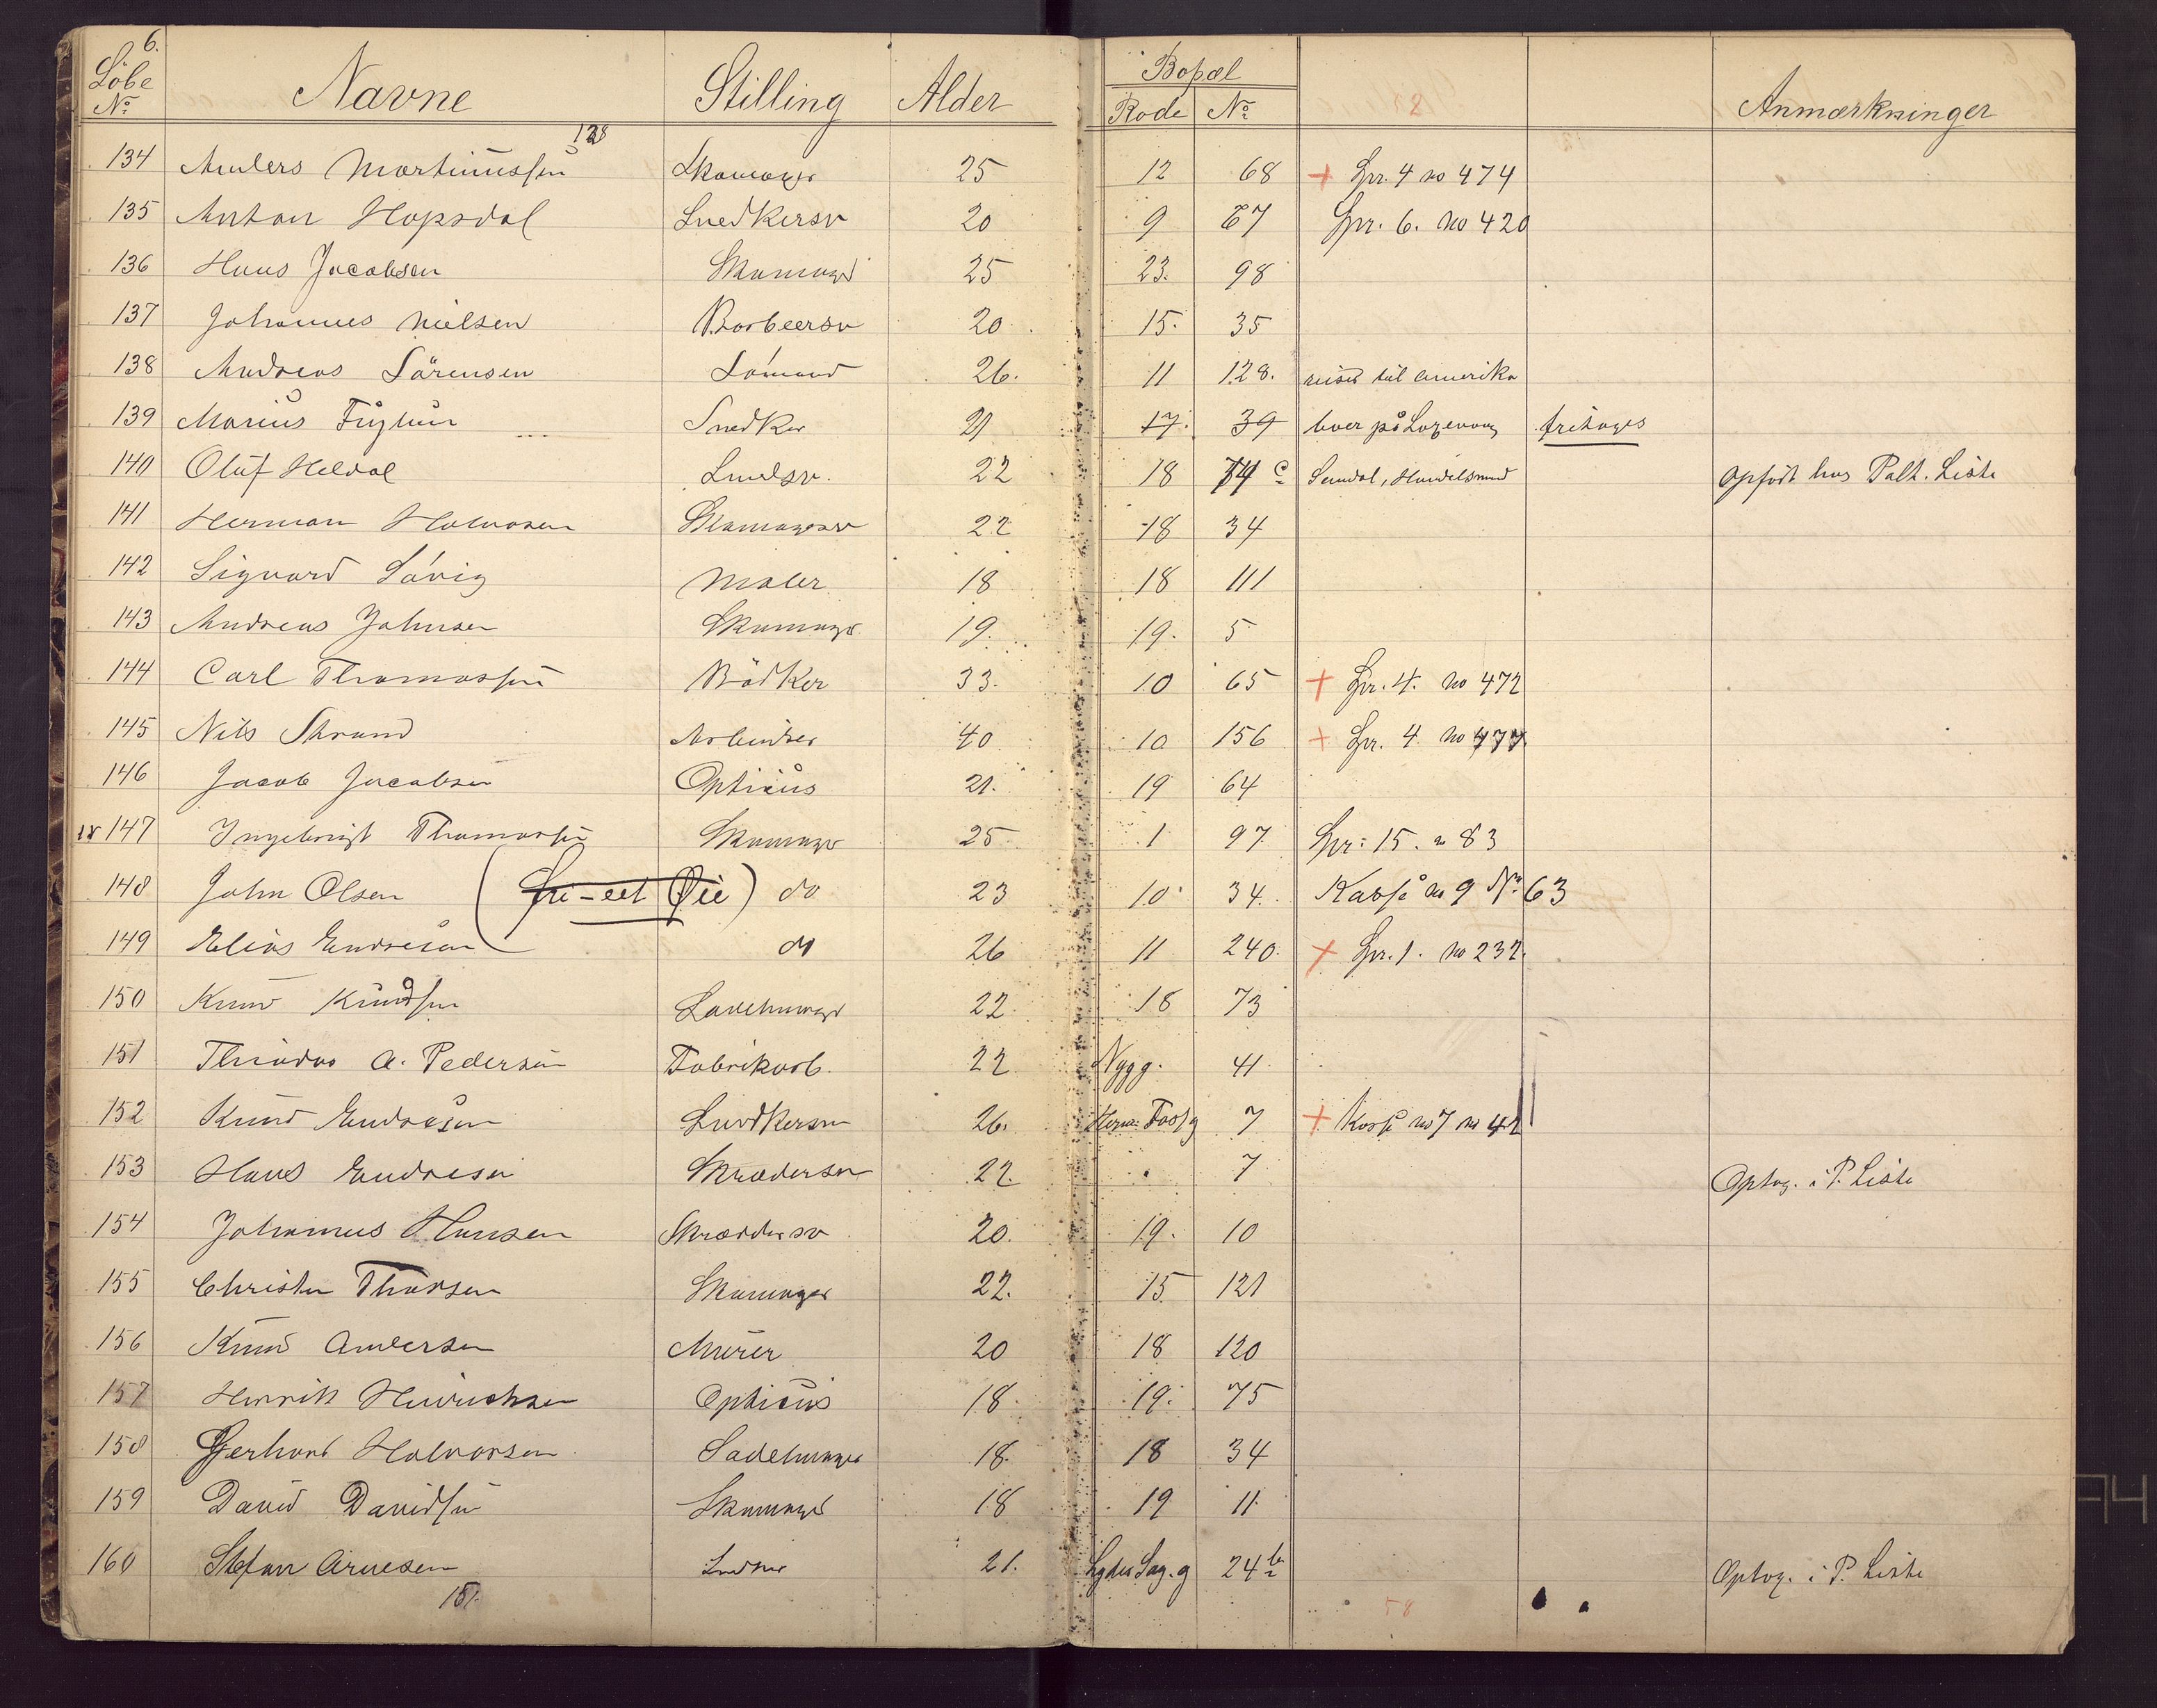 6.
Löbe No Navne Stilling Alder Bopæl Rode No Anmærkninger
128
134 Anders Martinussen Skomager 25 12 68 + Spr. 4 no 474
135 Anton Hopsdal Snedkersv 20 9 67 Spr. 6. no 420
136 Hans Jacobsen Skomager 25 23. 98
137 Johannes Nielsen Barbeersv 20. 15. 35
138 Andreas Sörensen Sömand 26. 11 128. reist til Amerika
139 Marius Fuglum Snedker 21 17. 39 boer på Laxevaag fritages
140 Oluf Heldal Smedsv. 22 18 74 c Sundal, Handelsmand Opfört hos Palt. Liste
141 Herman Halvorsen Skomagersv 22 18 34
142 Sigvard Sövig Maler 18 18 111
143 Andreas Johnsen Skomager 19. 19. 5
144 Carl Thomassen Bödker 33. 10 65 + Spr. 4. no 472
145 Nils Strand Arbeider 40 10 156 + Spr. 4 no 477
146 Jacob Jacobsen Opticus 21. 19 64
147 Ingebrigt Thomassen Skomager 25 1 97 Spr: 15. n 83
148 John Olsen (fri-eet Øie) do 23 10 34. Kasse no 9 No 63
149 Elias Endresen do 26 11 240. + Spr. 1. no 232.
150 Knud Knudsen Sadelmager 22 18 73
151 Theodor A. Pedersen Fabrikarb. 22 Nygg. 41
152 Knud Endresen Snedkersv 26. Herm. Fossg 7 + Kasse no 7 no 42
153 Hans Endresen Skrædersv 22. " 7 Optog. i P. Liste
154 Johannes Hansen Skræddersv 20. 19. 10
155 Christen Thorsen Skomager 22. 15 121
156 Knud Andersen Murer 20 18 120
157 Henrik Henrichsen Opticus 18 19. 75
158 Gerhard Halvorsen Sadelmager 18. 18 34
159 David Davidsen Skomager 18 19 11.
160 Stefan Arnesen 21. Lyder Sag. g 24 b Optog. i P. Liste
151.
58